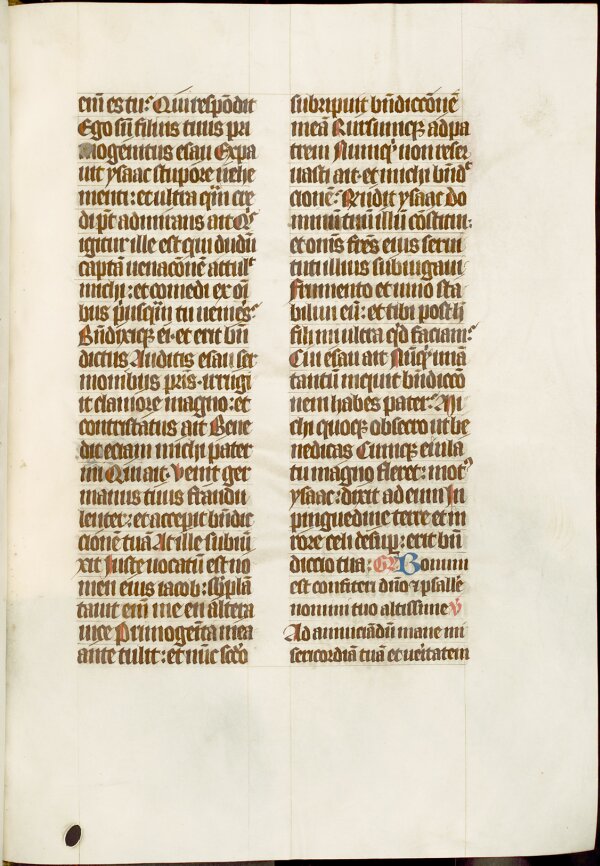 eiᷓ es tu? Qui respōdit
Ego sū filius tuus pri
mogenitus esau Expa
uit ysaac stupore uehe
menti: et ultra qm̄ cre
di pt̄ admirans ait Qͥs
igitur ille est qui dudū
captā uenacōnē attulͭ
michi: et comedi ex oī
bus priusqͥn tu uenires?
Bn̄dixiqꝫ ei· et erit bn̄
dictus Auditis esau ser
monibus pr̄is· irrugi
it clamore magno: et
consternatus ait Bene
dic eciam michi pater
mi Qui ait· Venit ger
manus tuus fraudu
lenter: et accepit bn̄dic
cionē tuā At ille subiū
xit Juste uocatū est no
men eius iacob: sb̄plan
tauit em̄ me en altera
uice Primogeīta mea
ante tulit: et nūc scd̄o
subripuit bn̄diccōnē
meā Rursumqꝫ ad pa
trem Numqͥd non reser
uasti ait· et michi bn̄dͨ
cionē? Rn̄dit ysaac Do
minū tuū illū cōstitui:
et om̄s fr̄es eius serui
tuti illius subiugaui
frumento et uino sta
biliui eū: et tibi post h̄
fili mi ultra qͥd faciam?
Cui esau ait Nūqͥd unā
tantū inquit bn̄dicco
nem habes pater? Mi
chi quoqꝫ obsecro ut be
nedicas Cumqꝫ eiula
tu magno fleret: motꝰ
ysaac: dixit ad eum In
pinguedine terre et in
rore celi desup̱: erit bn̄
diccio tua: Gr̄ Bonum
est confiteri dn̄o ⁊ psalle
nomini tuo altissime v̄
Ad annuciādū mane mi
sericordiā tuā et ueritatem